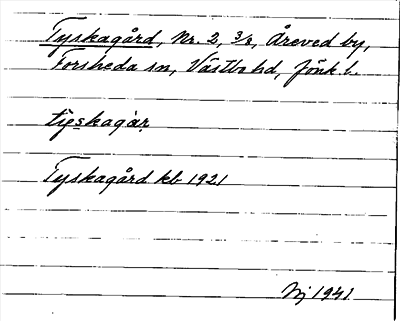 Tyskagård, Nr. 2, 3/8, Åreved by,
Forsheda sn, Västbo hd, Jönk. l.
Tyskagård kb 1921
Nj 1941